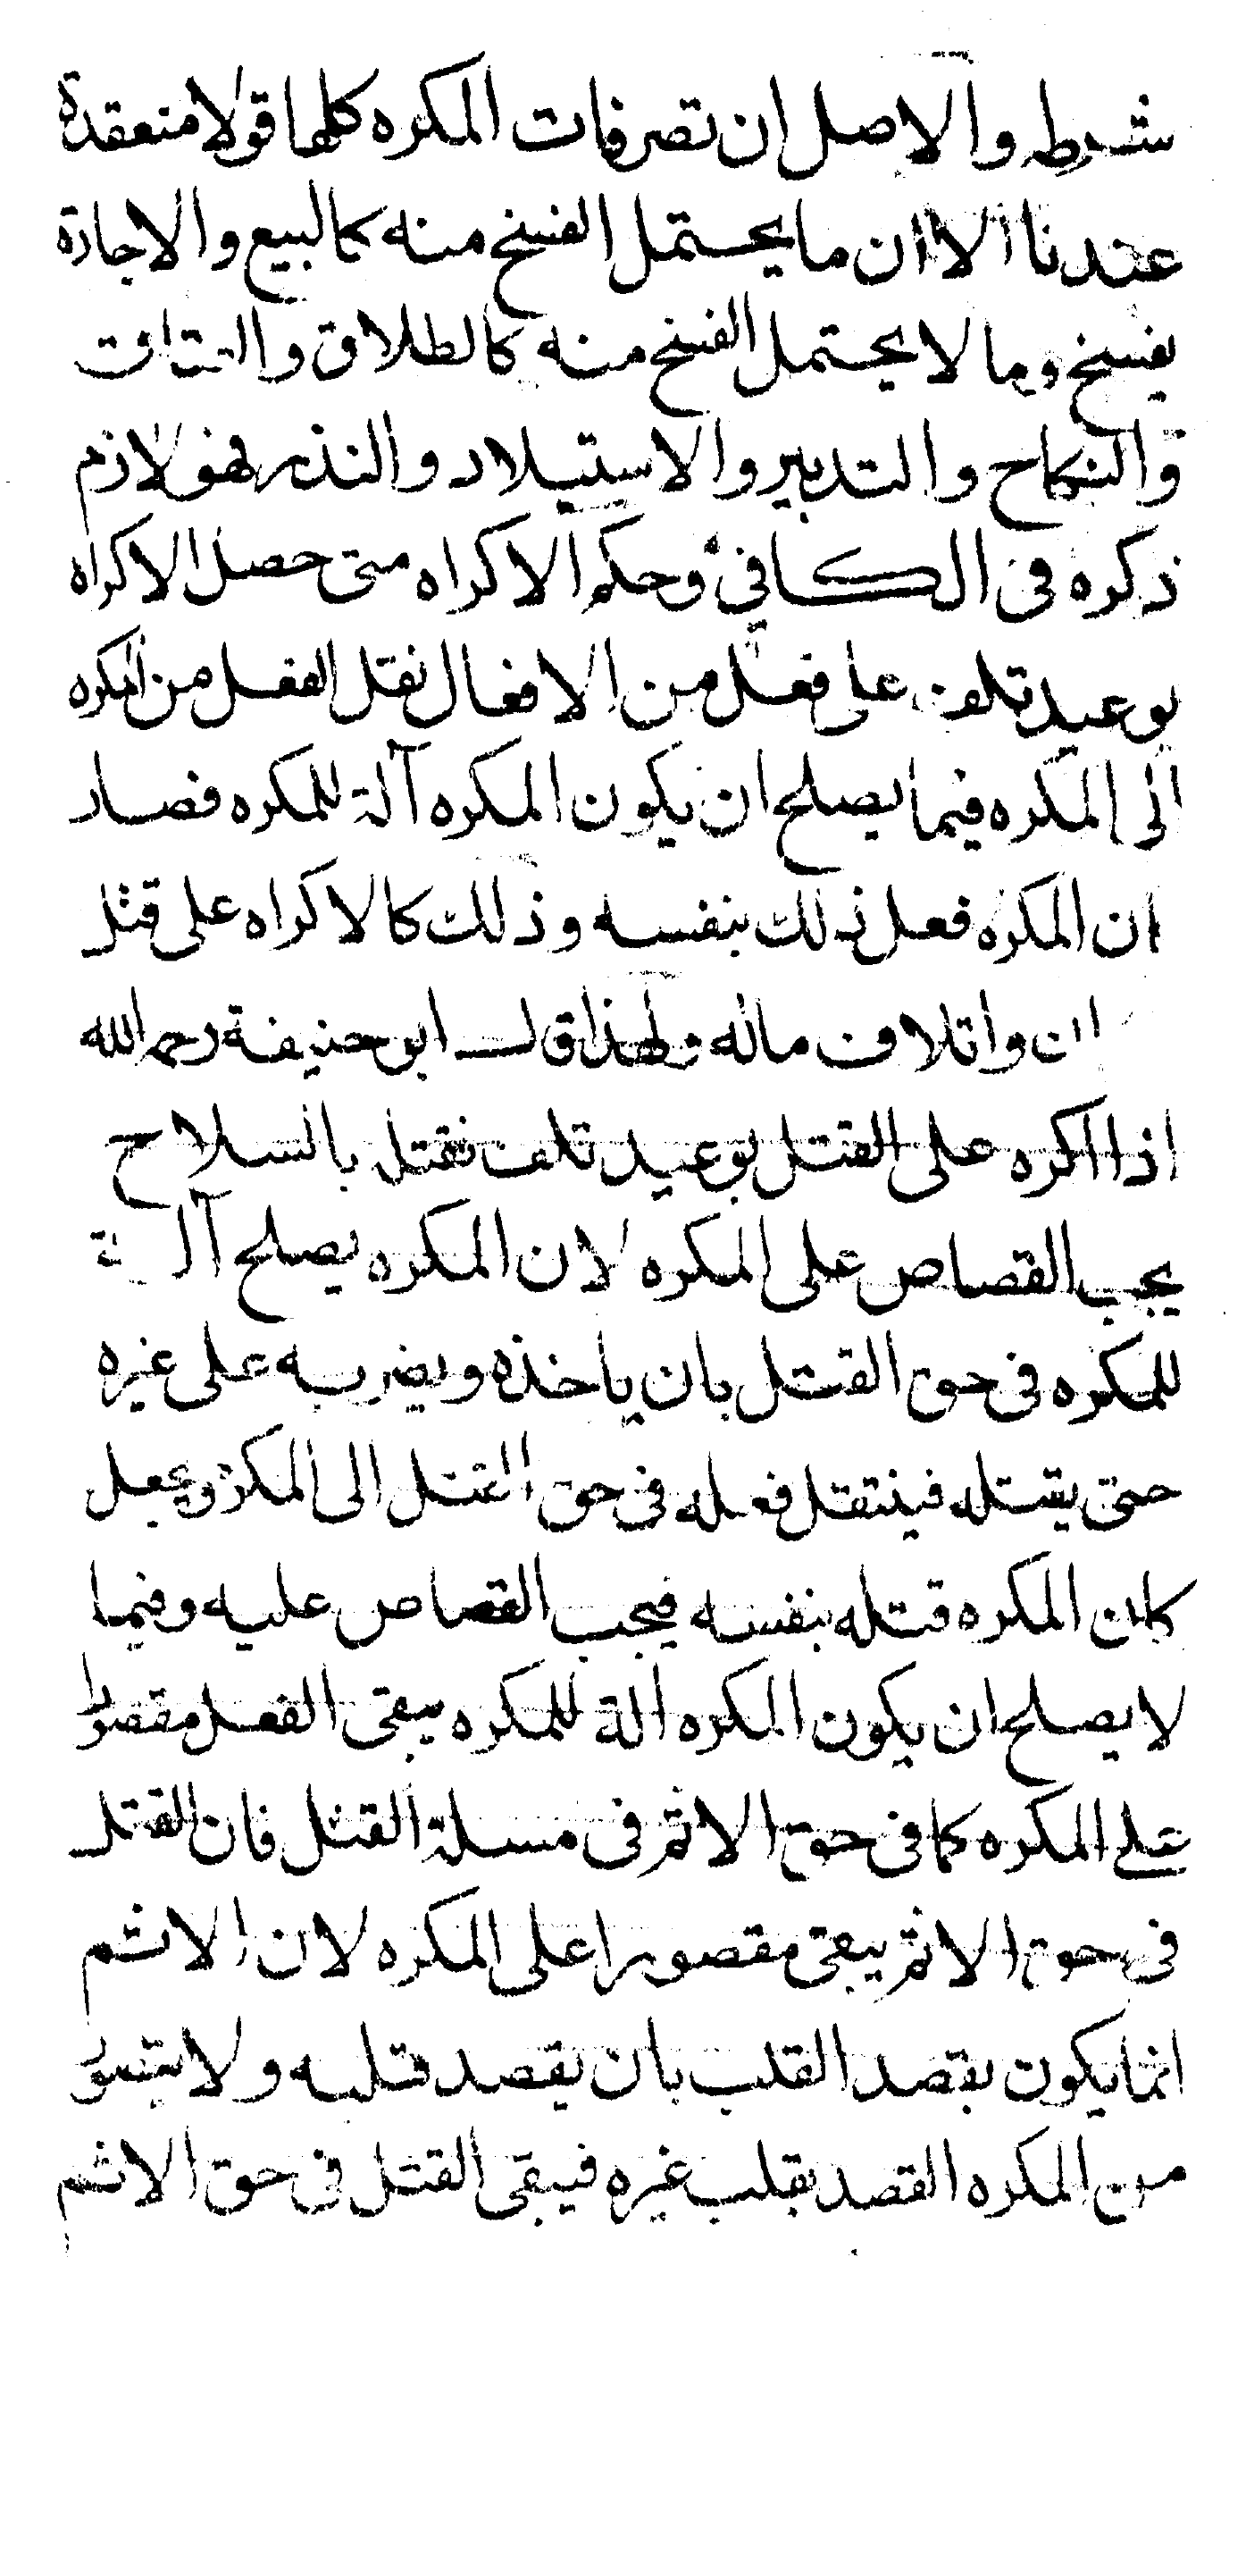 شرطه والاصل ان تصرفات المكره كلها قولا منعقدة
عندنا الا ان ما يحتمل الفسخ منه كالبيع والاجارة
يفسخ وما لا يحتمل الفسخ منه كالطلاق والعتاق
والنكاح والتدبير والاستيلاد والنذر فهو لازم
ذكره في الكافي وحكم الاكراه متى حصل الاكراه
بوعيد تلف على فعل من الافعال نقل الفعل من المكره
الى المكره فيما يصلح ان يكون المكره آلة للمكره فصار
ان المكره فعل ذلك بنفسه وذلك كالاكراه على قتل
واتلاف ماله ولهذا قال ابو حنيفة رحمه الله
اذا اكره على القتل بوعيد تلف فقتل بالسلاح
يجب القصاص على المكره لان المكره يصلح آلة
للمكره في حق القتل بان ياخذه ويضربه على غيره
حتى يقتله فينتقل فعله في حق القتل الى المكره ويجعل
كان المكره قتله بنفسه فيجب القصاص عليه وفيما
لا يصلح ان يكون المكره آلة للمكره يبقى الفعل مقصورا
على المكره كما في حق الاثم في مسلة القتل فان القتل
في حق الاثم يبقى مقصورا على المكره لان الاثم
انما يكون بقصد القلب بان يقصد قلبه ولا يتصور
من المكره القصد بقلب غيره فيبقى القتل في حق الاثم